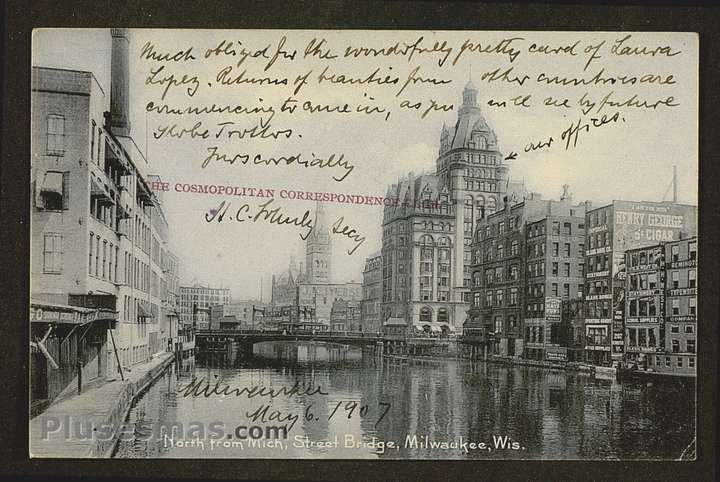 Much obliged for the wonderfully pretty card of Laura
Lopez. Returns of beauties from other countries are
commencing to come in, as you will see by future
Globe Trotters.
our offices.
Yours cordially
THE COSMOPOLITAN CORRESPONDENCE
H. C. Secy
HENRY GEORGE
5¢ CIGAR
Milwaukee
May 6. 1907
Plusesmas.com
North from Mich, Street Bridge, Milwaukee, Wis.